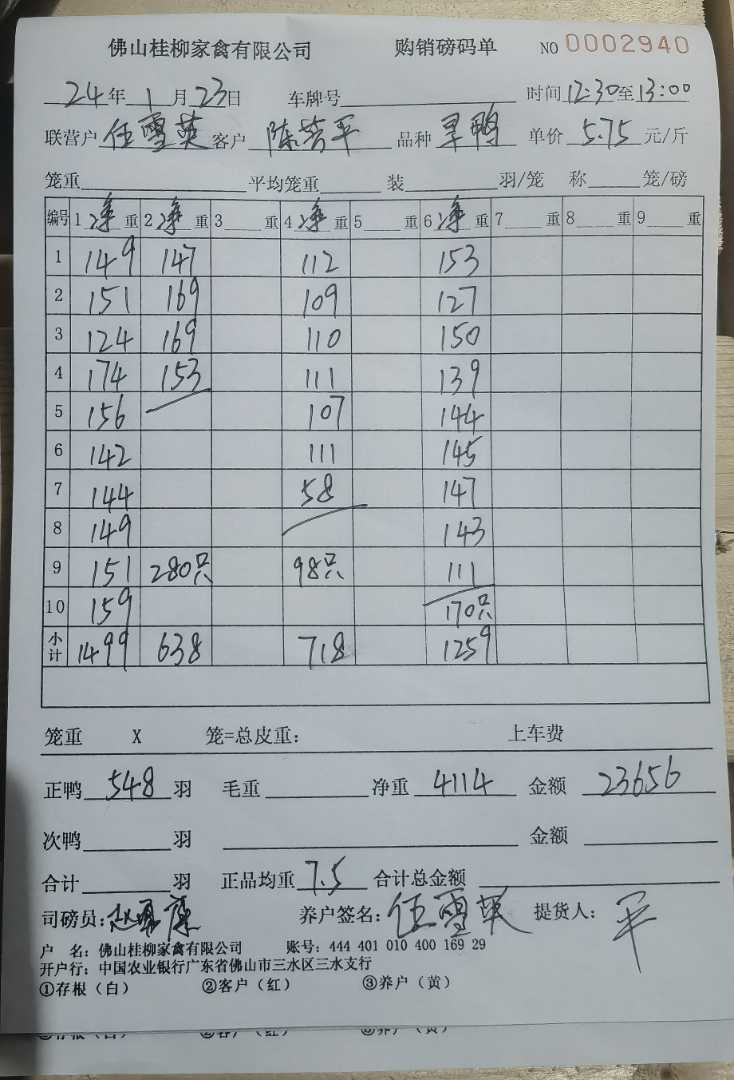 佛山桂柳家禽有限公司 购销磅码单 NO 0002940
24年1月23日 车牌号 时间12:30至13:00
联营户 任雪英 客户 陈苦平 品种 旱鸭 单价 5.75 元/斤
笼重 平均笼重 装 羽/笼 称 笼/磅
编号 1 净重 2 净重 3 重 4 净重 5 重 6 净重 7 重 8 重 9 重
1 149 147 112 153
2 151 169 109 127
3 124 169 110 150
4 174 153 111 139
5 156 107 144
6 142 111 145
7 144 58 147
8 149 143
9 151 280只 98只 111
10 159 170只
小计 1499 638 718 1259
笼重 X 笼=总皮重: 上车费
正鸭 548 羽 毛重 净重 4114 金额 23656
次鸭 羽 金额
合计 羽 正品均重 7.5 合计总金额
司磅员: 养户签名: 任雪英 提货人: 平
户 名: 佛山桂柳家禽有限公司 账号: 444 401 010 400 169 29
开户行: 中国农业银行广东省佛山市三水区三水支行
①存根(白) ②客户(红) ③养户(黄)